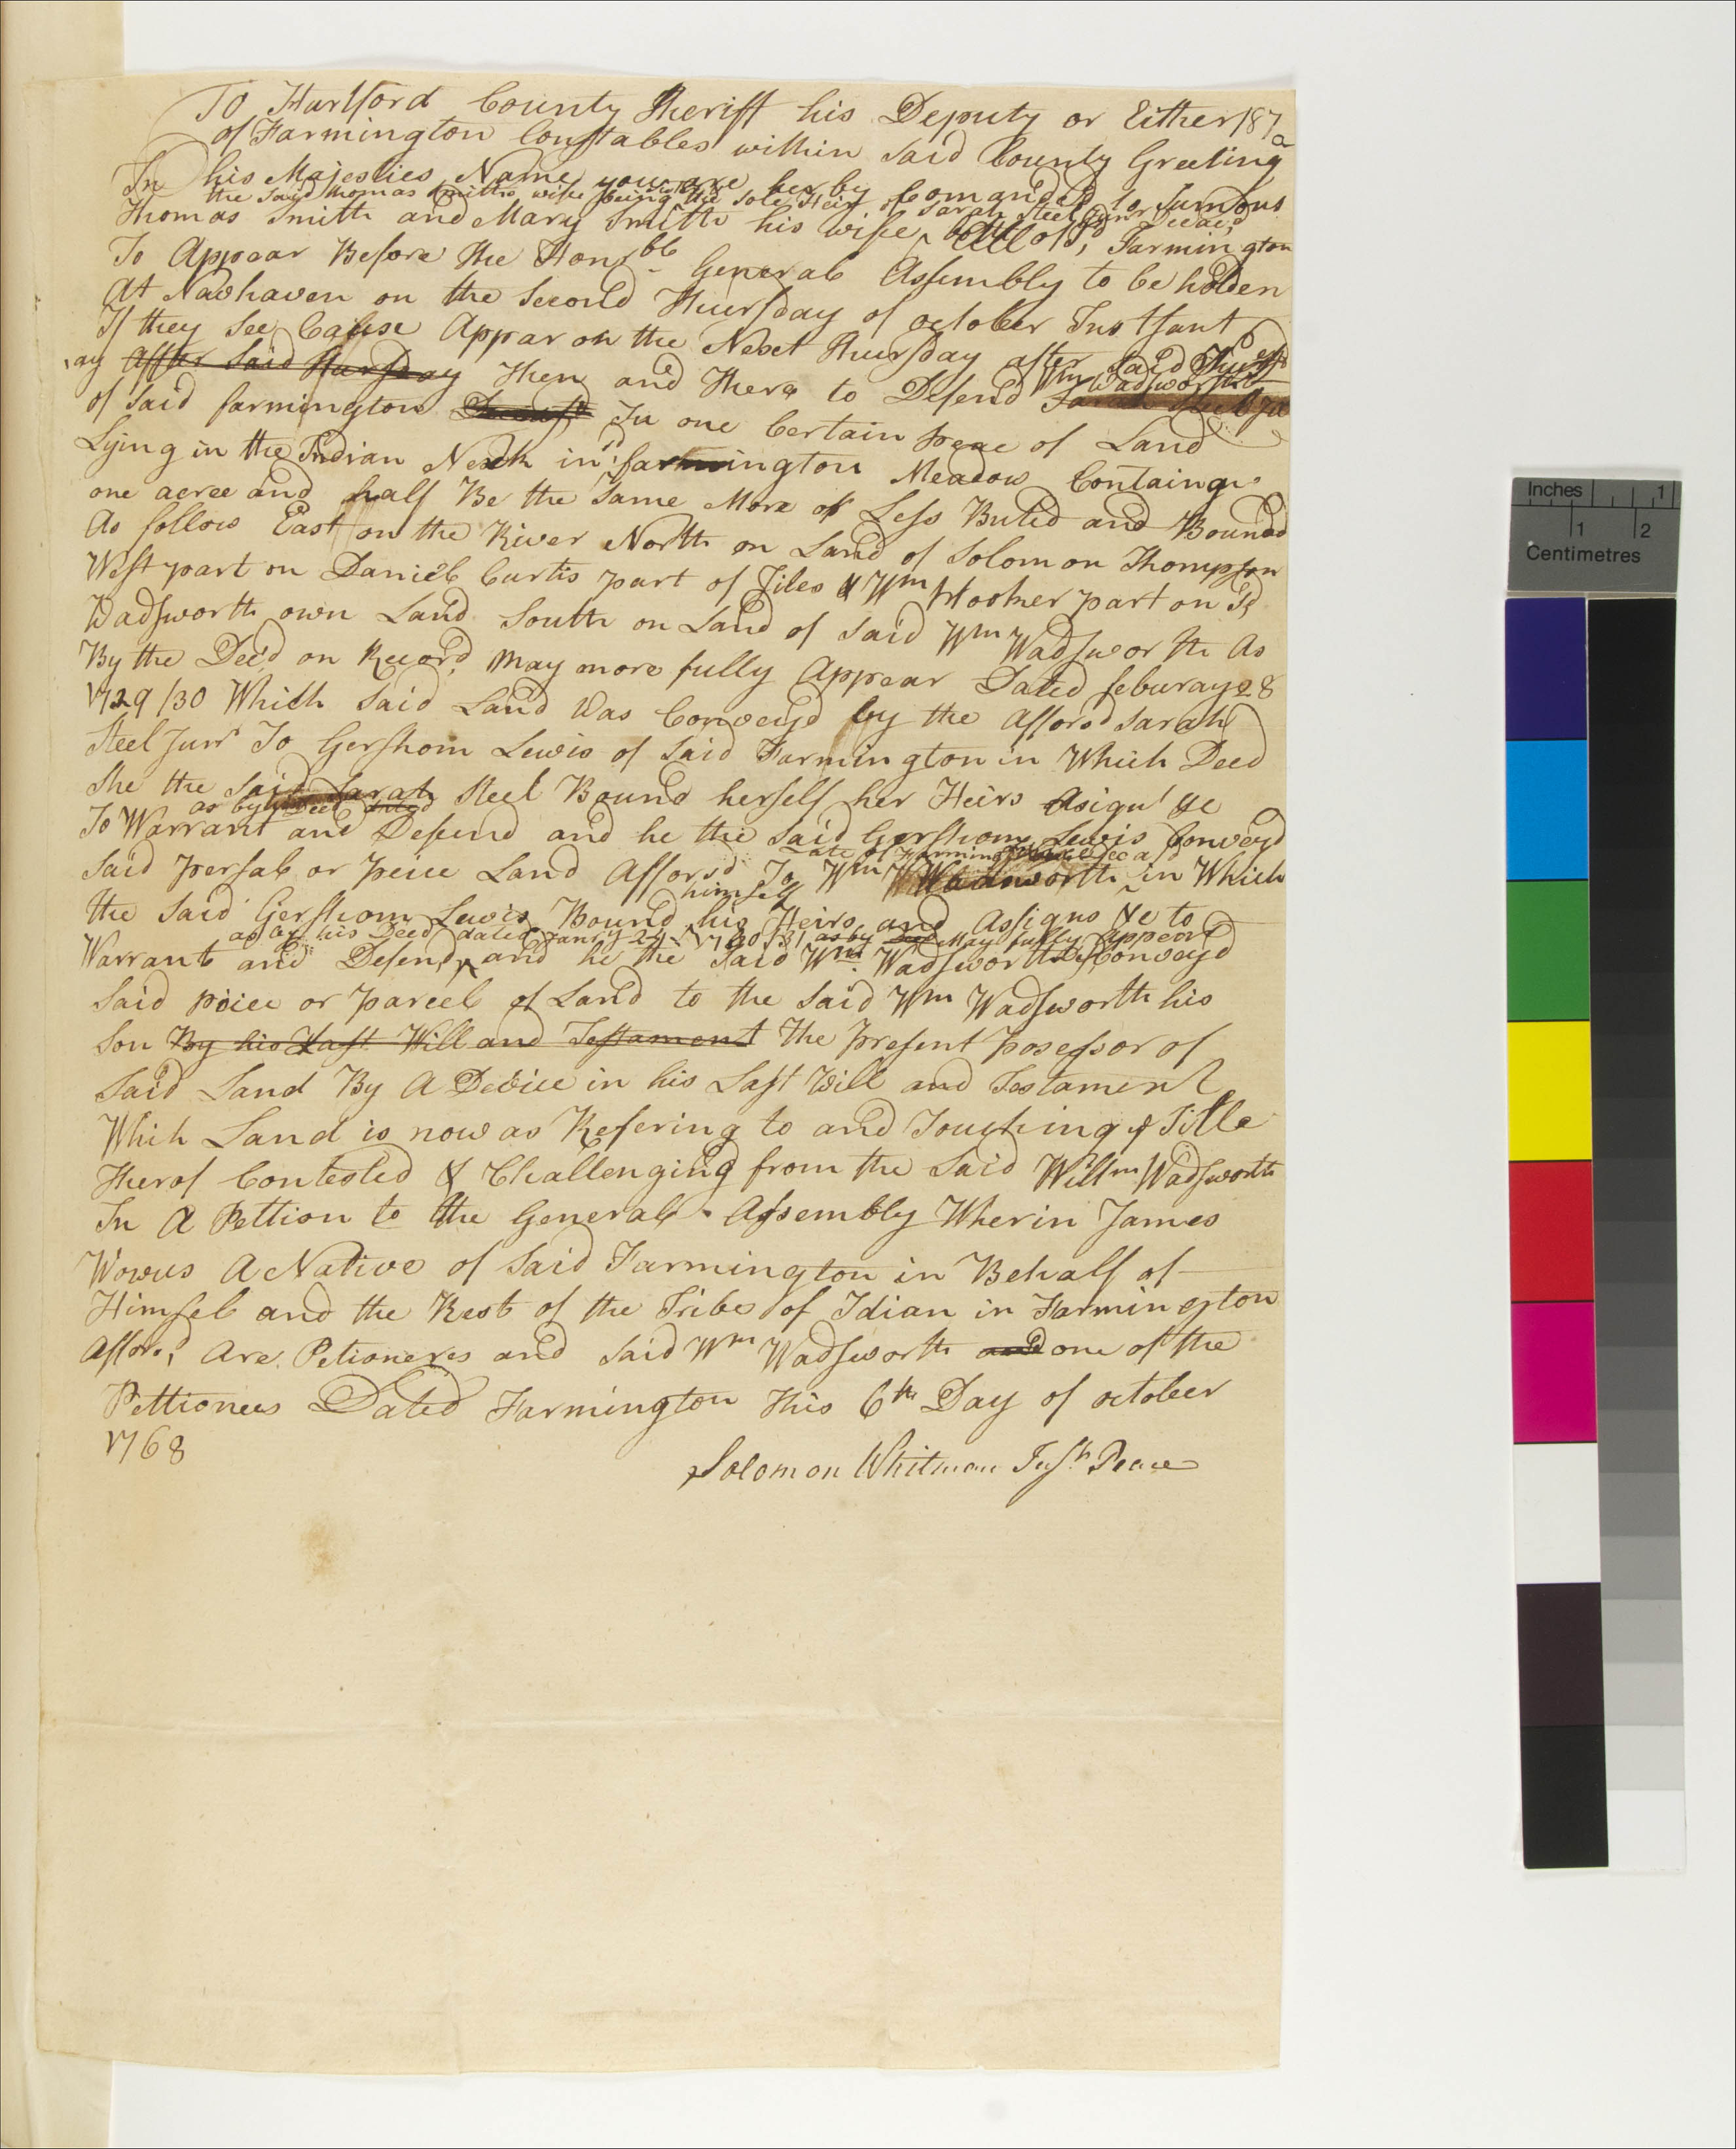 187
a
To Hartford County Sheriff his Deputy or Either
of Farmington Constables within said County Greeting
In his Majesties Name you are herby Comanded to Sumons
the said thomas Smiths wife being the sole Heir of Sarah Steel Junr Decad
Thomas Smith and Mary Smith his wife All of sd Farmington
To Appear Before the Honrbb General Assembly to be holden
At Nawhaven on the Second Thursday of october Instant
If they See Cause Appar on the Next Thursday after said Thursd
ay After Said Thursday Then and There to Defend
Wm Wadsworth
of Said farmington In one Certain peac of Land
Lying in the Indian Neck in farmington Meadow Containg
one acree and half Be the Same More or Less Buted and Bounded
As follows East on the River North on Land of Solomon Thompson
West part on Daniel Curtis part of Jiles & Wm Hooker part on Sd
Wadsworth own Land South on Land of Said Wm Wadsworth As
By the Deed on Record May more fully Appear Dated feburay 28
1729/30 Which Said Land Was Conveyd by the Afforsd Sarah
Steel Junr To Gershom Lewis of Said Farmington in Which Deed
She the Said Sarah Steel Bound herself her Heirs Asign' &c
as by
To Warrant and Defend and he the Said Gershom Lewis Conveyd
Late of Farmington Decad
Said persal or peice Land Afforsd To Wm Wadsworth in Which
himself
the Said Gershom Lewis Bound his Heirs and Assigns &c to
as by his Deed dated Janry 24 1730/31 as by Deed May fully Appear
Warrant and Defend and he the Said Wm Wadsworth Conveyd
Said peice or parcel of Land to the Said Wm Wadsworth his
Son By his Last Will and Testament the Present Posessor of
Said Land By A Devise in his Last Will and Testament
Which Land is now as Refering to and Touching ye Title
Therof Contested & Challenging from the Said Willm Wadsworth
In A Pettion to the General Assembly Wherin James
Wowus A Native of Said Farmington in Behalf of
Himself and the Rest of the Tribe of Idian in Farmington
Afford Are Petioneres and Said Wm Wadsworth and one of the
Pettionees Dated Farmington this 6th Day of october
1768
Solomon Whitman Justs Peace
Inches 1
1 2
Centimetres